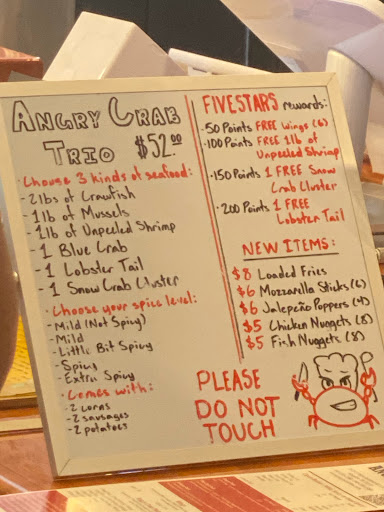 ANGRY CRAB
TRIO $52.00
· Choose 3 kinds of seafood:
- 2lbs of Crawfish
- 1lb of Mussels
- 1lb of Unpeeled Shrimp
- 1 Blue Crab
- 1 Lobster Tail
- 1 Snow Crab Cluster
· Choose your spice level:
- Mild (Not Spicy)
- Mild
- Little Bit Spicy
- Spicy
- Extra Spicy
· Comes with:
- 2 corns
- 2 sausages
- 2 potatoes
FIVESTARS rewards:
· 50 Points FREE Wings (6)
· 100 Points FREE 1lb of
Unpeeled Shrimp
· 150 Points 1 FREE Snow
Crab Cluster
· 200 Points 1 FREE
Lobster Tail
NEW ITEMS:
$8 Loaded Fries
$6 Mozzarella Sticks (6)
$6 Jalepeño Poppers (4)
$5 Chicken Nuggets (8)
$5 Fish Nuggets (8)
PLEASE
DO NOT
TOUCH